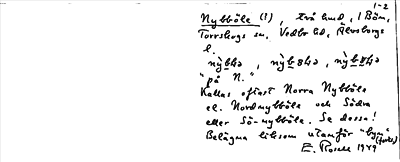 1-2
Nybböle (?), två hmd, i Bön,
Torrskogs sn, Vedbo hd, Älvsborgs
l.
"på N."
Kallas oftast Norra Nybböle
el. Nordnybböle och Södra
eller Sö-nybböle. Se dessa!
Belägna liksom utanför "byn"
E. Rosell 1949